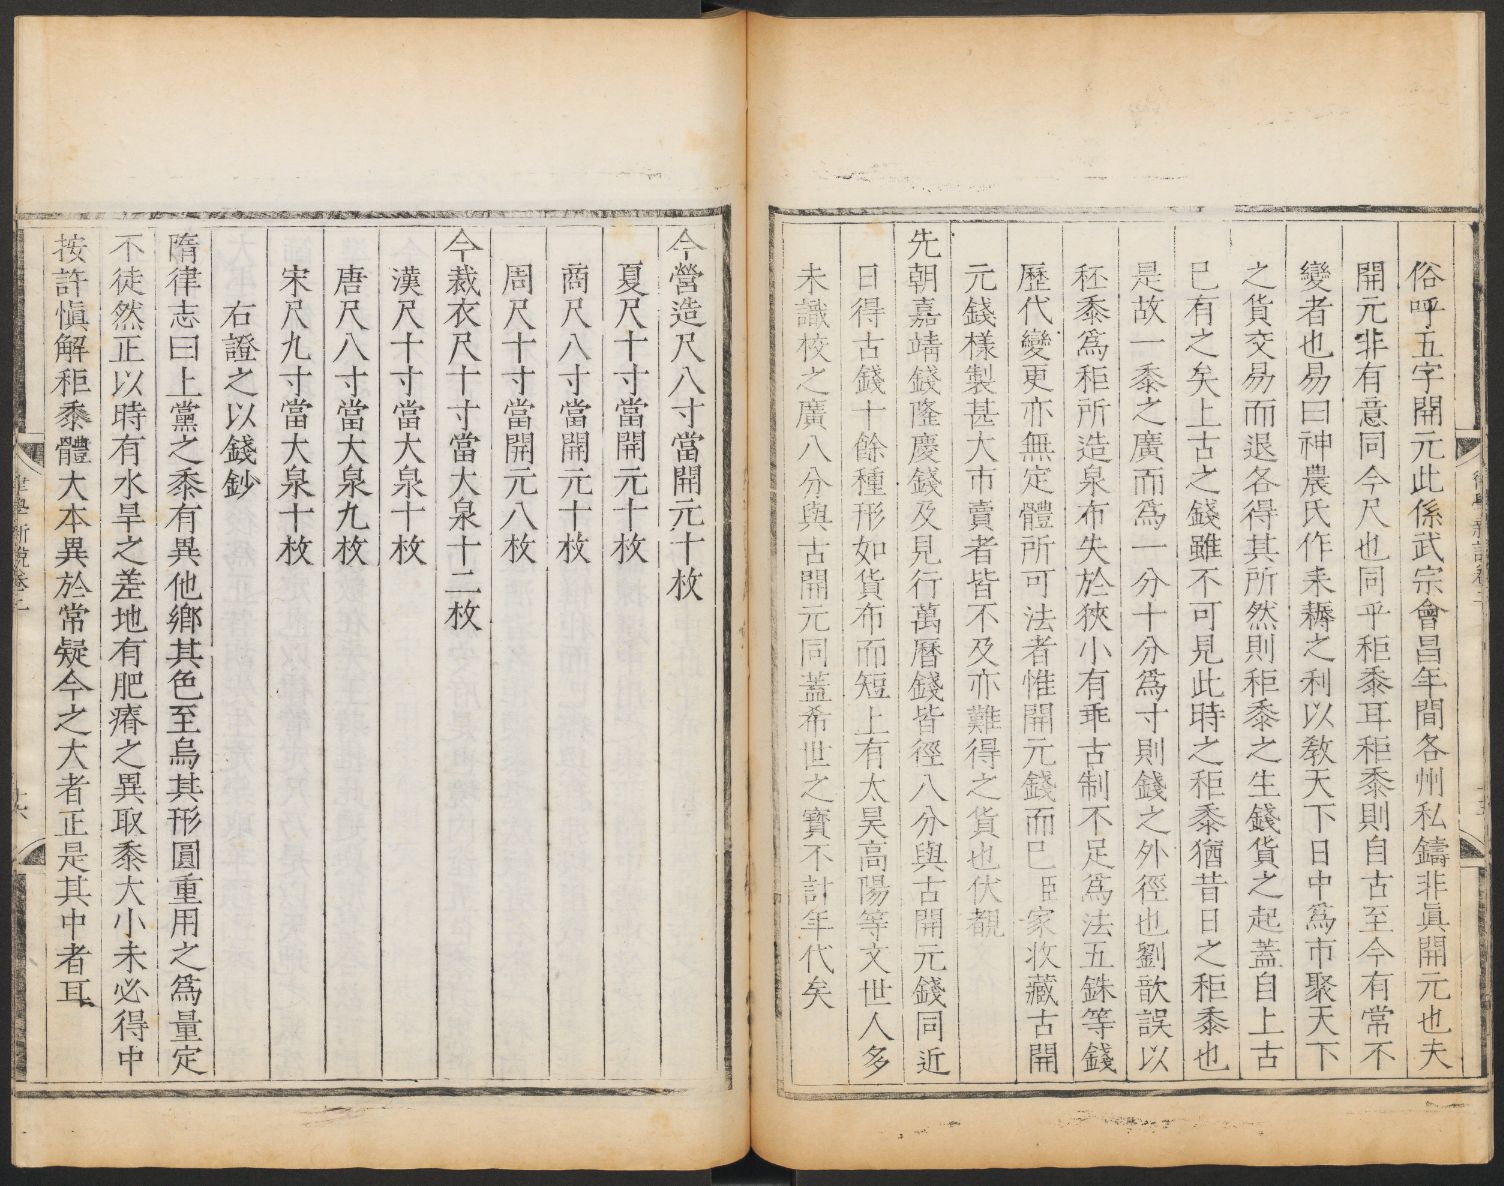 俗呼五字開元此係武宗會昌年間各州私鑄非眞開元也夫
開元非有意同今尺也同乎秬黍耳秬黍則自古至今有常不
變者也易曰神農氏作耒耨之利以敎天下日中爲市聚天下
之貨交易而退各得其所然則秬黍之生錢貨之起蓋自上古
已有之矣上古之錢雖不可見此時之秬黍猶昔日之秬黍也
是故一黍之廣而爲一分十分爲寸則錢之外徑也劉歆誤以
秠黍爲秬所造泉布失於狹小有乖古制不足爲法五銖等錢
歷代變更亦無定體所可法者惟開元錢而已臣家收藏古開
元錢樣製甚大市賣者皆不及亦難得之貨也伏覩
先朝嘉靖錢隆慶錢及見行萬曆錢皆徑八分與古開元錢同近
日得古錢十餘種形如貨布而短上有太昊高陽等文世人多
未識校之廣八分與古開元同蓋希世之寶不計年代矣
律學新說卷二
十五
今營造尺八寸當開元十枚
夏尺十寸當開元十枚
商尺八寸當開元十枚
周尺十寸當開元八枚
今裁衣尺十寸當大泉十二枚
漢尺十寸當大泉十枚
唐尺八寸當大泉九枚
宋尺九寸當大泉十枚
右證之以錢鈔
隋律志曰上黨之黍有異他鄉其色至烏其形圓重用之爲量定
不徒然正以時有水旱之差地有肥瘠之異取黍大小未必得中
按許愼解秬黍體大本異於常疑今之大者正是其中者耳
律學新說卷二
十六